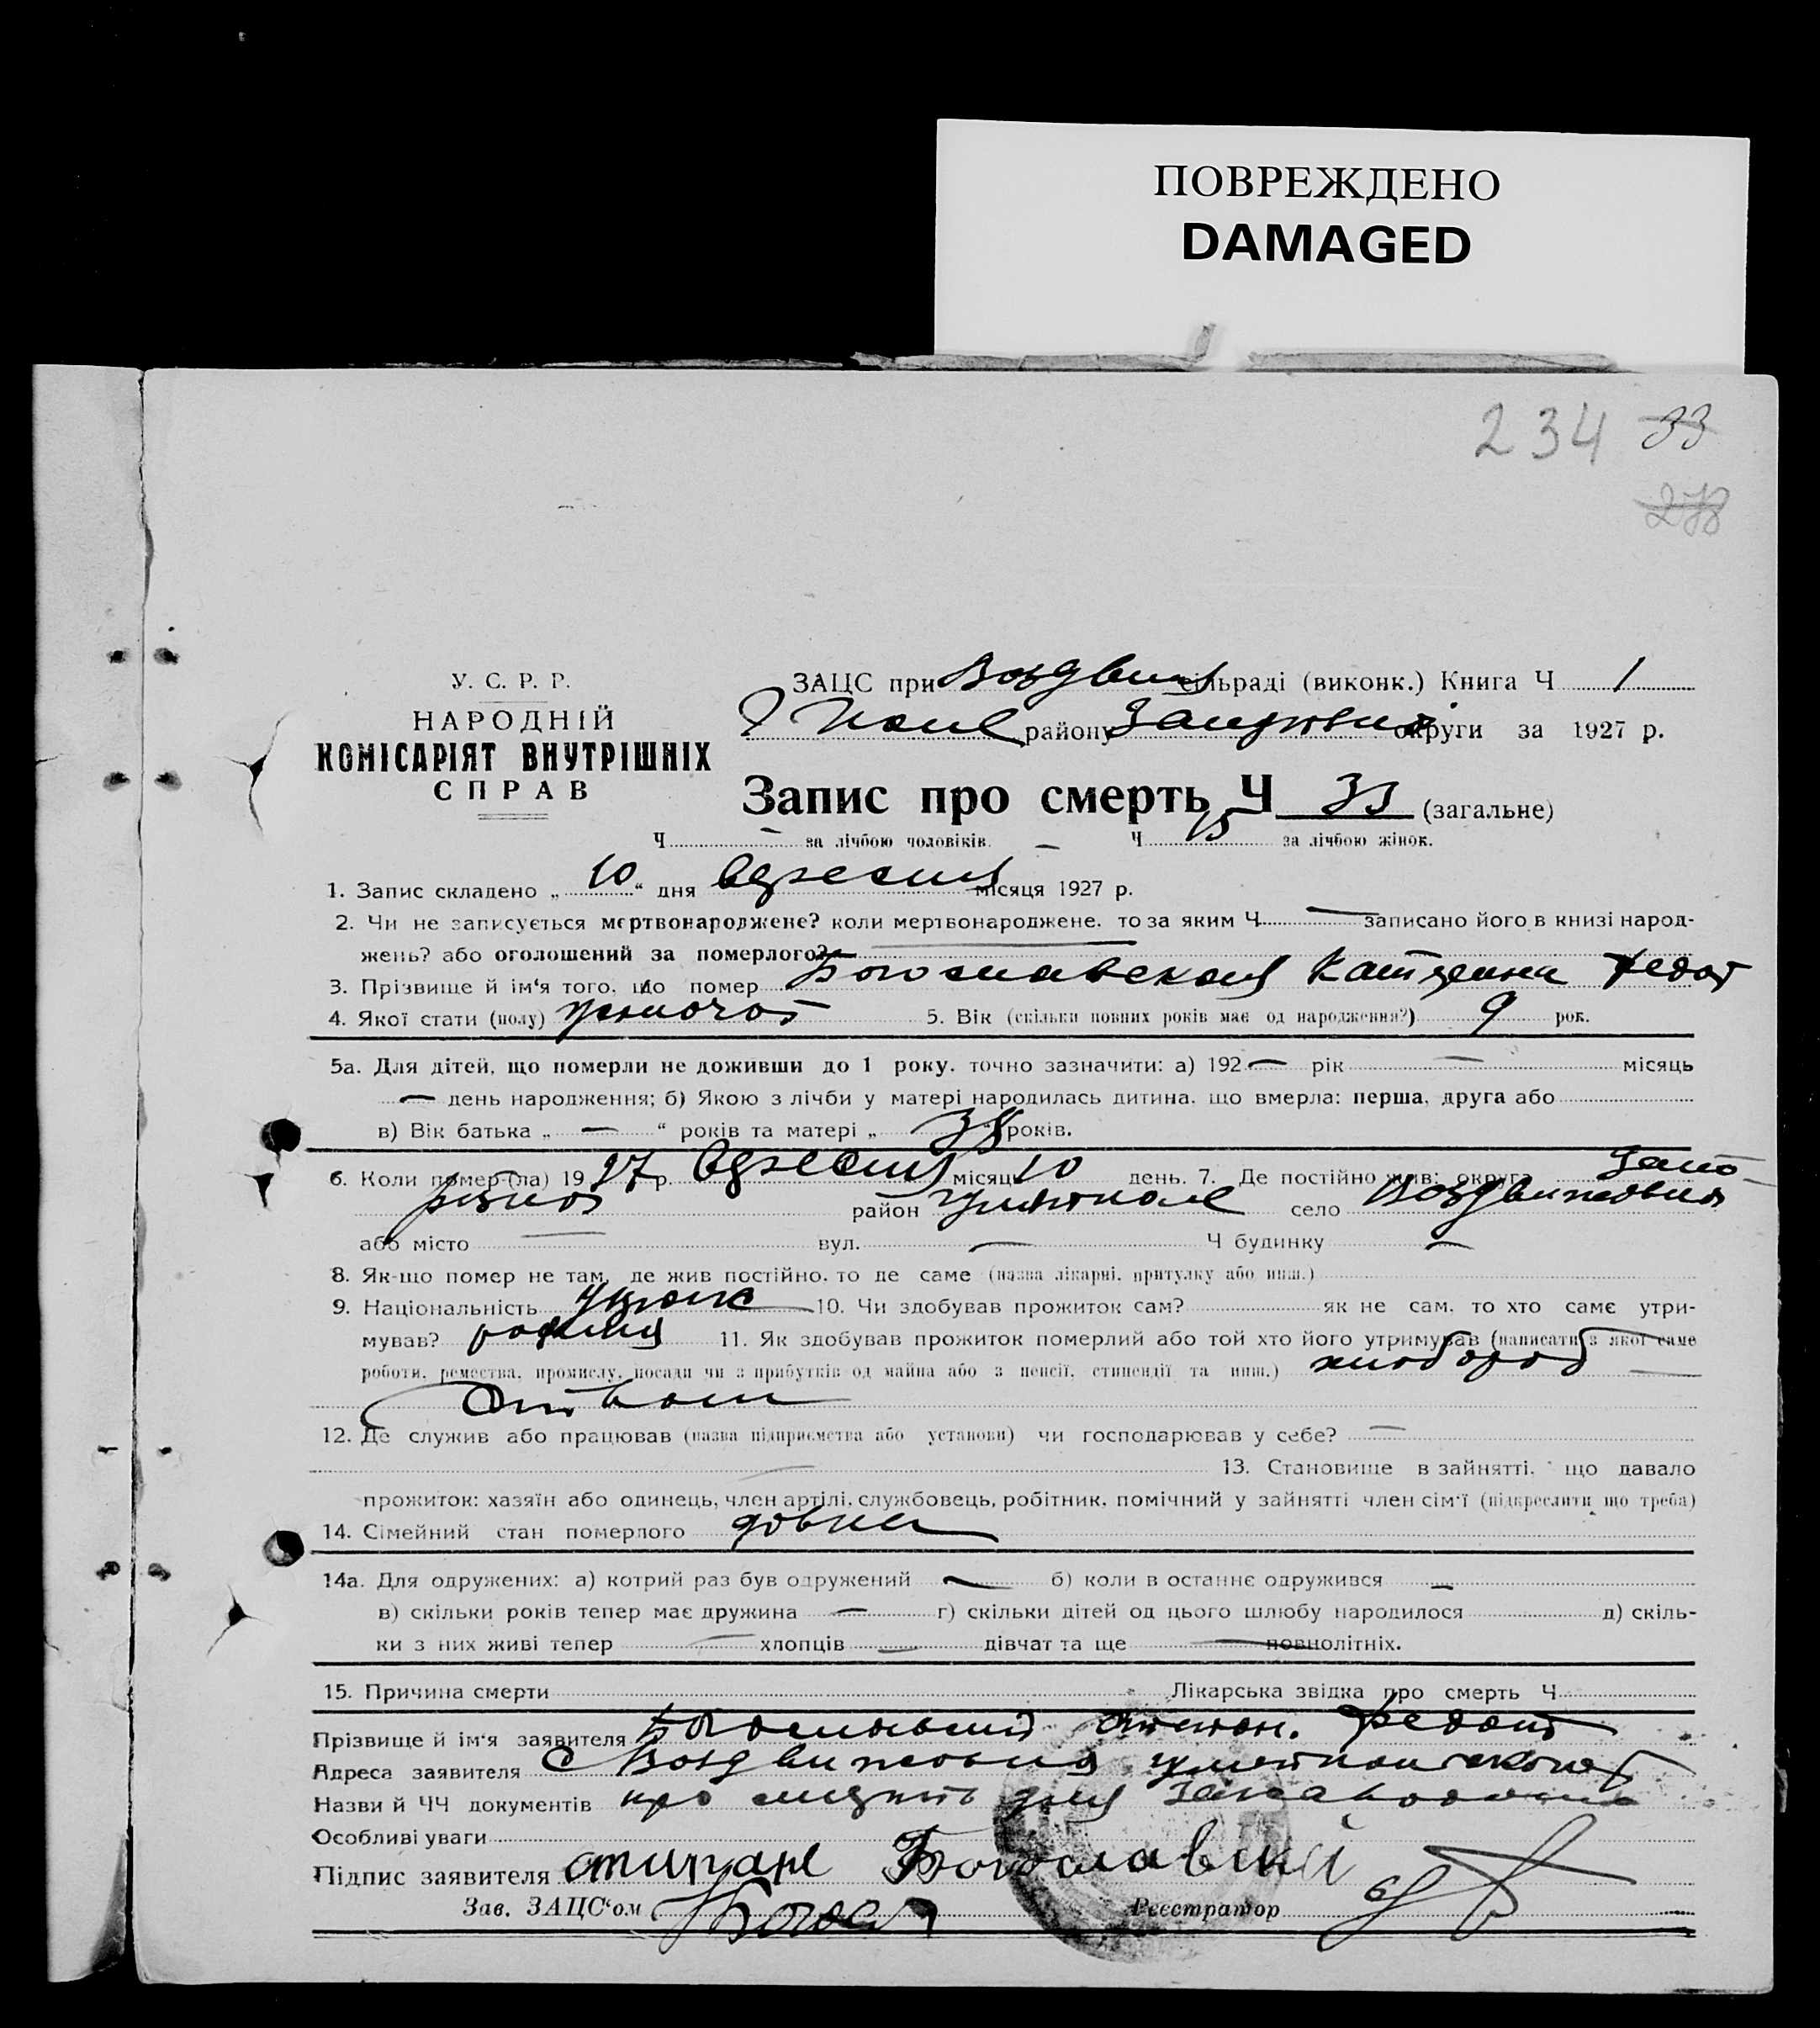 ПОВРЕЖДЕНО
DAMAGED
234 33
278
У. С. Р. Р.
НАРОДНІЙ
КОМІСАРІЯТ ВНУТРІШНІХ
СПРАВ
ЗАЦС при Воздвиж сільраді (виконк.) Книга Ч 1
району округи за 1927 р.
Запис про смерть Ч 33 (загальне)
Ч — за лічбою чоловіків. — Ч 15 за лічбою жінок.
1. Запис складено „ 10 “ дня вересня місяця 1927 р.
2. Чи не записується мертвонароджене? коли мертвонароджене, то за яким Ч — записано його в книзі народ-
жень? або оголошений за померлого? —
3. Прізвище й ім'я того, що помер Богославская Катерина Федот
4. Якої статі (полу) жіночої 5. Вік (скільки повних років має од народження?) 9 рок.
5а. Для дітей, що померли не доживши до 1 року, точно зазначити: а) 192 — рік — місяць
— день народження; б) Якою з лічби у матері народилась дитина, що вмерла: перша, друга або
в) Вік батька „ — “ років та матері „ 38 років.
6. Коли помер-(ла) 19 27 р. вересня місяця 10 день. 7. Де постійно жив: округа Запо-
різької район Гуляйполе село Воздвижовка
або місто — вул. — Ч будинку —
8. Як-що помер не там, де жив постійно, то де саме (назва лікарні, притулку або инш.)
9. Національність Україн 10. Чи здобував прожиток сам? як не сам, то хто саме утри-
мував? родина 11. Як здобував прожиток померлий або той хто його утримував (написати з якої саме
роботи, ремества, промислу, посади чи з прибутків од майна або з пенсії, стипендії та инш.) хлібороб —
ством
12. Де служив або працював (назва підприємства або установи) чи господарював у себе? —
— 13. Становище в зайнятті, що давало
прожиток: хазяїн або одинець, член артілі, службовець, робітник, помічний у зайнятті член сім'ї (підкреслити що треба)
14. Сімейний стан померлого дівка
14а. Для одружених: а) котрий раз був одружений — б) коли в останнє одружився —
в) скільки років тепер має дружина — г) скільки дітей од цього шлюбу народилося д) скіль-
ки з них живі тепер — хлопців — дівчат та ще — повнолітніх.
15. Причина смерти Лікарська звідка про смерть Ч
Прізвище й ім'я заявителя Богославський Степан. Федот
Адреса заявителя с Воздвижовка Гуляйпольського
Назви й ЧЧ документів про смерть для
Особливі уваги
Підпис заявителя Богославскій
Зав. ЗАЦС'ом Реєстратор